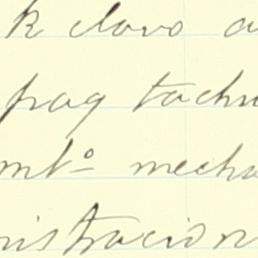 k clavo a
pag tachu
mto mecha
nistracion